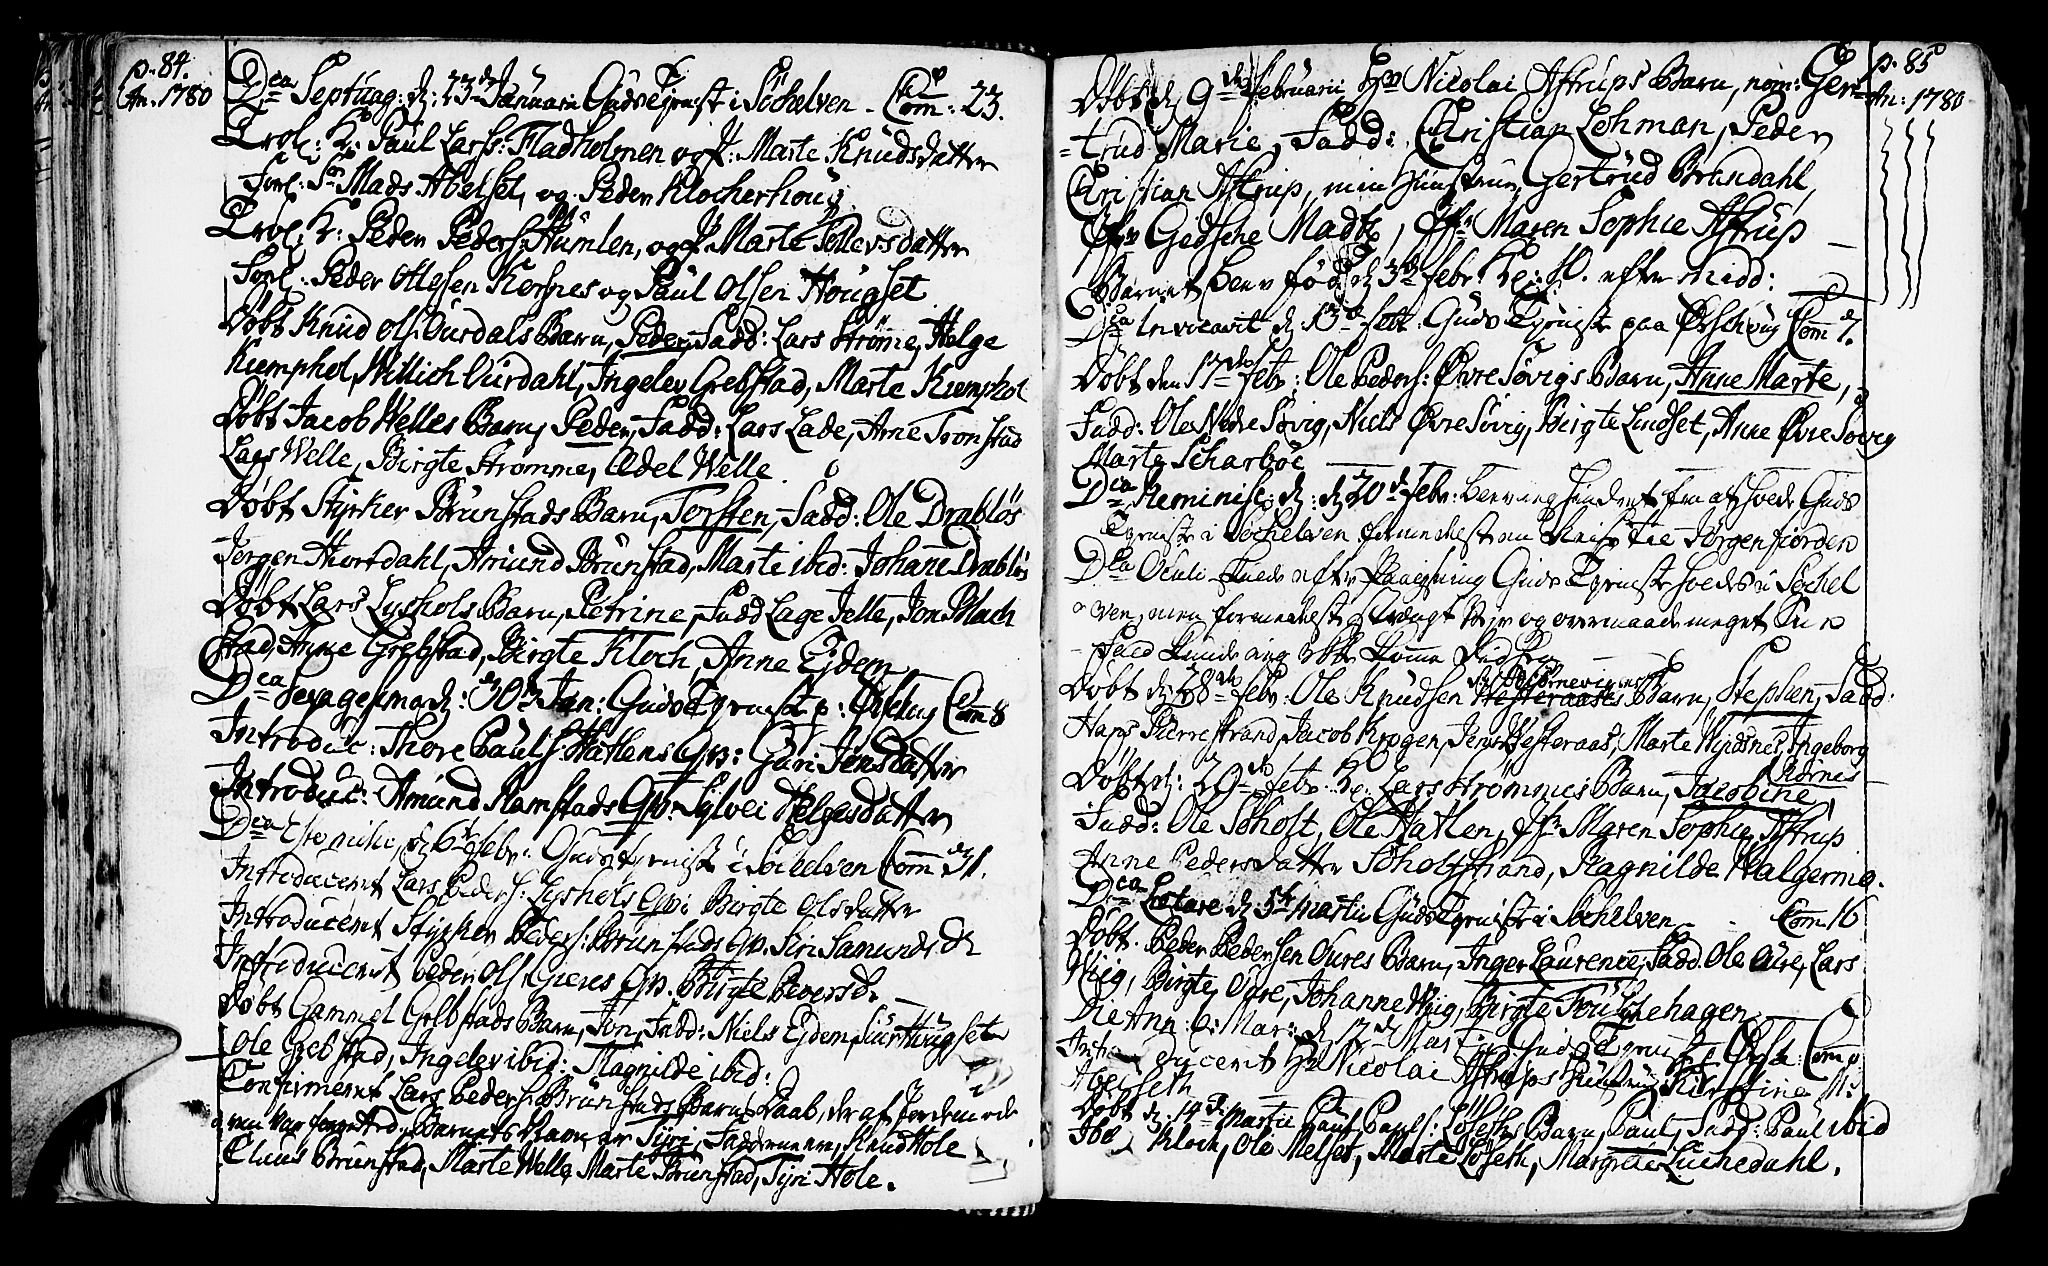 p. 84.
An. 1780
Dca Septuag: d: 23de Januarii Guds Tieniste i Söchelven - Com: 23.
Trol: K: Paul Lars: Fladholmen og P: Marte Knudsdatter
Forl: Sr Mads Abelset, og Peder Klocherhoug
Trol: K: Peder Peders: Humlen, og P. Marte Sollevsdatter
Forl: Peder Ottesen Kersnes og Paul Olsen Hougset
Döbt Knud Ols: Ourdals Barn, Peder, Fadd: Lars Strömme, Helge
Kiemphol, Willich Ourdahl, Ingelev Grebstad, Marte Kiemphol
Döbt Jacob Welles Barn, Peder, Fadd: Lars Lade, Arne Tronstad
Lars Welle, Birgte Stromme,Ædel Welle
Döbt Styrker Brunstads Barn, Torsten, Fadd: Ole Drablös
Jörgen Hiortdahl, Amund Brunstad, Marte ibid: Johane Drablös
Döbt Lars Lyshols Barn, Petrine, Fadd Lage Jelle, Jon Blach
stad, Anne Grebstad, Birgte Kloch, Anne Ejdem
Dca Sexagesima d: 30te Jan: Guds Tieniste p: Örschoug Com 8
Introduc: Thore Pauls: Hatlens Qv: Guri Jensdatter
Introduc: Amund Ramstads Qv: Sylvei Helgesdatter
Dca Estomihi, d 6te Febr: Guds Tieniste i Söchelven Com 31.
Introduceret Lars Peders: Lyshols Qvi Birgte Olsdatter
Introduceret Styrker Peders: Brunstads Qv. Siri Samunds D
Introduceret Peder Ols: Gieres Qv. Birgte Peversd.
Döbt Gammel Grebstads Barn, Jon, Fadd: Niels Ejdem, Siur Hougset
Ole Grebstad, Ingelev ibid: Magnilde ibid:
Confirmeret Lars Peders: Brunstads Barns Daab, der af Jordemode
ren var forrettet, Barnets Navn er Syri, Fadderne ere, Knud Hole
Claus Brunstad, Marte Welle, Marte Brunstad, Syri Hole.
p. 85
An: 1780
Döbt d, 9de Februarii Hr Nicolai Astrups Barn, nom: Ger
trud Marie, Fadd: Christian Lohman, Peder
Christian Astrup, min Hustrue Gertrud Brandahl,
Gedsche Madts, Jfr Maren Sophie Astrup
Barnet blev föd d 3de Febr Kl: 10. efter midd:
Dca Invocavit d 13de Febr: Guds Tieniste paa Örschoug Com 7.
Döbt den 17de Febr: Ole Peders: Övre Sövigs Barn, Anne Marte,
Fadd: Ole Nedre Sövig, Niels Övre Sövig, Birgte Lindset, Anne Övre Sövig
Marte Scharböe
Dca Reminisc: d: 20de Febr: blev ieg hindret fra at holde Guds
Tieniste i Söchelven formedelst en Reise til Jörgenfiorden
Dca Oculi skulde efter Guds Tieniste holdes i Söchel
ven, men formedelst Vejr og overmaade meget Snee
fald kunde ieg ikke komme did
Döbt d: 28de Febr: Ole Knudsen Westeraases Barn, Stephen, Fadd:
Hans Pierrestrand, Jacob Krogen, Jens Westeraas, Marte Wiisnes, Ingeborg
Rörnes
Döbt d: 29de Febr. Kl: Lars Strömmes Barn, Jacobine,
Fadd: Ole Soholt, Ole Hatlen, Jfr Maren Sophie Astrup
Anne Pedersdatter Soholtstrand, Ragnilde Walgerma.
Dca Lætare d 5te Martii Guds Tieniste i Söchelven - Com 16
Döbt. Peder Pedersen Oures Barn, Inger Laurence, Fadd. Ole Oure, Lars
Wiig, Birgte Oure, Johanne Wiig, Birgte Hagen
Die Ann: B: Mar: d 12 Martii Guds Tieniste p: Örsch: Com
Introduceret Hr Nicolai Astrups Hustrue Kirstine M:
Abelseth
Döbt d. 14de Martii Paul Pauls: Löseths Barn, Paul, Fadd: Paul ibid
Kloch, Ole Melset, Marte Löseth, Margrete Luchedahl.